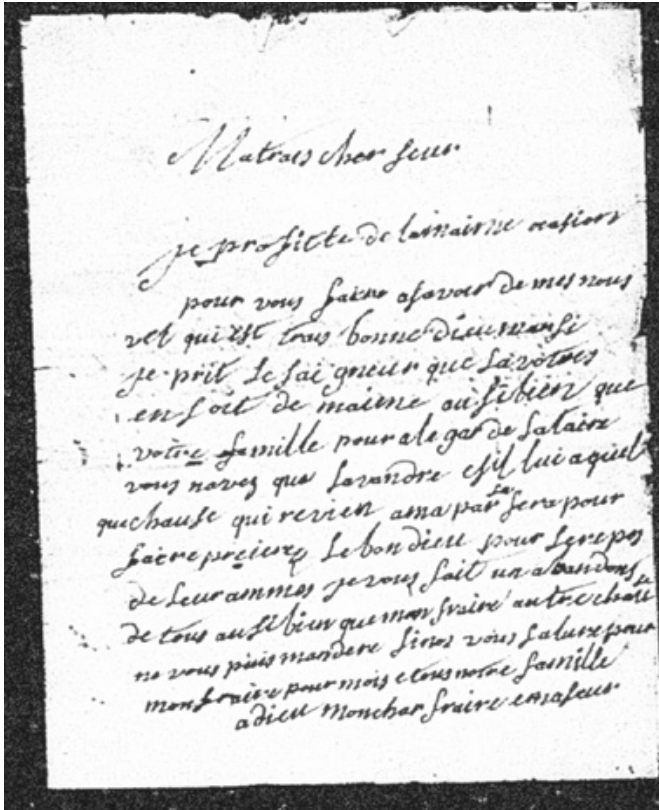 Matrais cher seur
je profitte de lamaime ocasion
pour vous faire asavoir de mes nou
vel qui est trais bonne dieu mersi
je prit le saigneur que la votres
en soit de maime ausibien que
votre famille pour alegar de lataire
vous naves que lavandre esil lui aquel
quechause qui revien ama par sa sera pour
faire preiere le bon dieu pour le repos
de leur ammes je vous fait un abandons
de tous ausibien que mon fraire autre chause
ne vous puis mandere sinos vous salure pour
mon fraire pour mois e tous notre famille
adieu moncher fraire emaseur